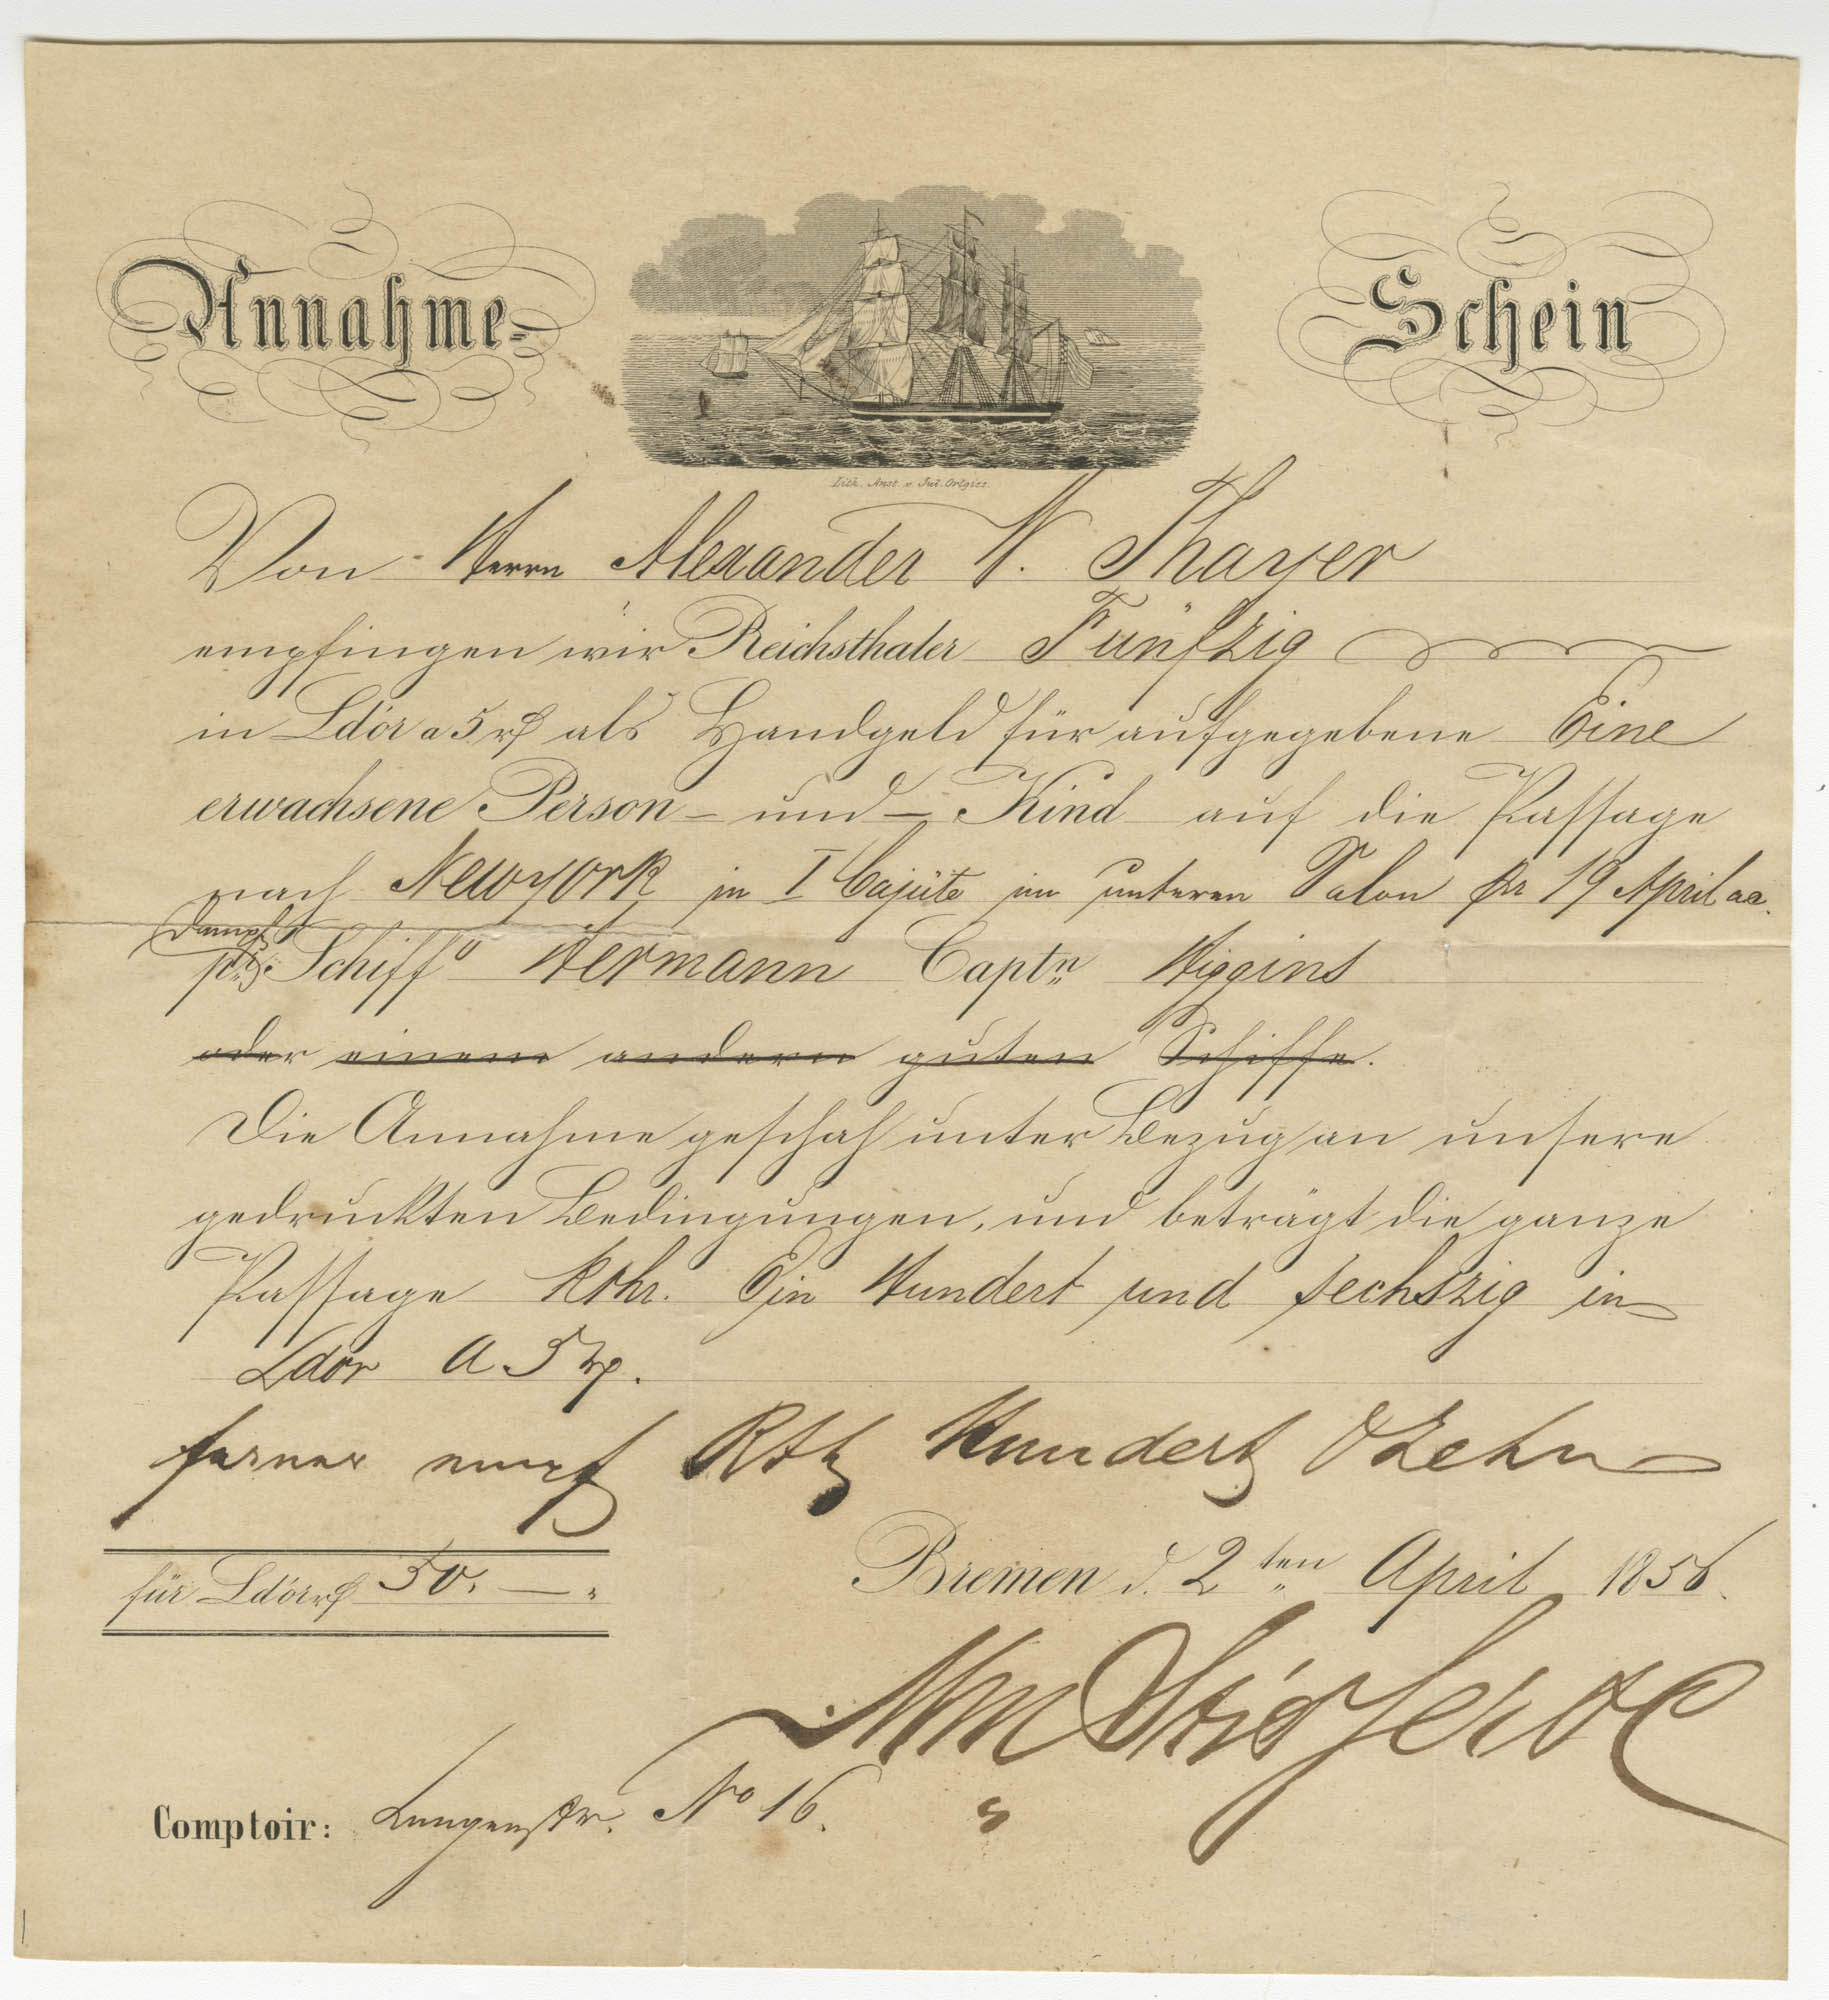 Annahme- Schein
Lith. Anst. v. Jul. Ortgies.
Von Herrn Alexander W. Thayer
empfingen wir Reichsthaler Fünfzig
in Ldór a 5 rß als Handgeld für aufgegebene Eine
erwachsene Person – und – Kind auf die Passage
nach Newyork in I Cajüte im unteren Salon pr 19 April ac.
Dampf
pr. Schiff Hermann Captn Higgins
oder einem andern guten Schiffe.
Die Annahme geschah unter Bezug an unsere
gedruckten Bedingungen, und beträgt die ganze
Passage Rthr. Ein Hundert und sechszig in
Ldor a 5 rß.
ferner Rth Hundert & Zehn
Bremen d. 2ten April 1856.
für Ldór rß 50. —
Comptoir: Langenstr. No 16.